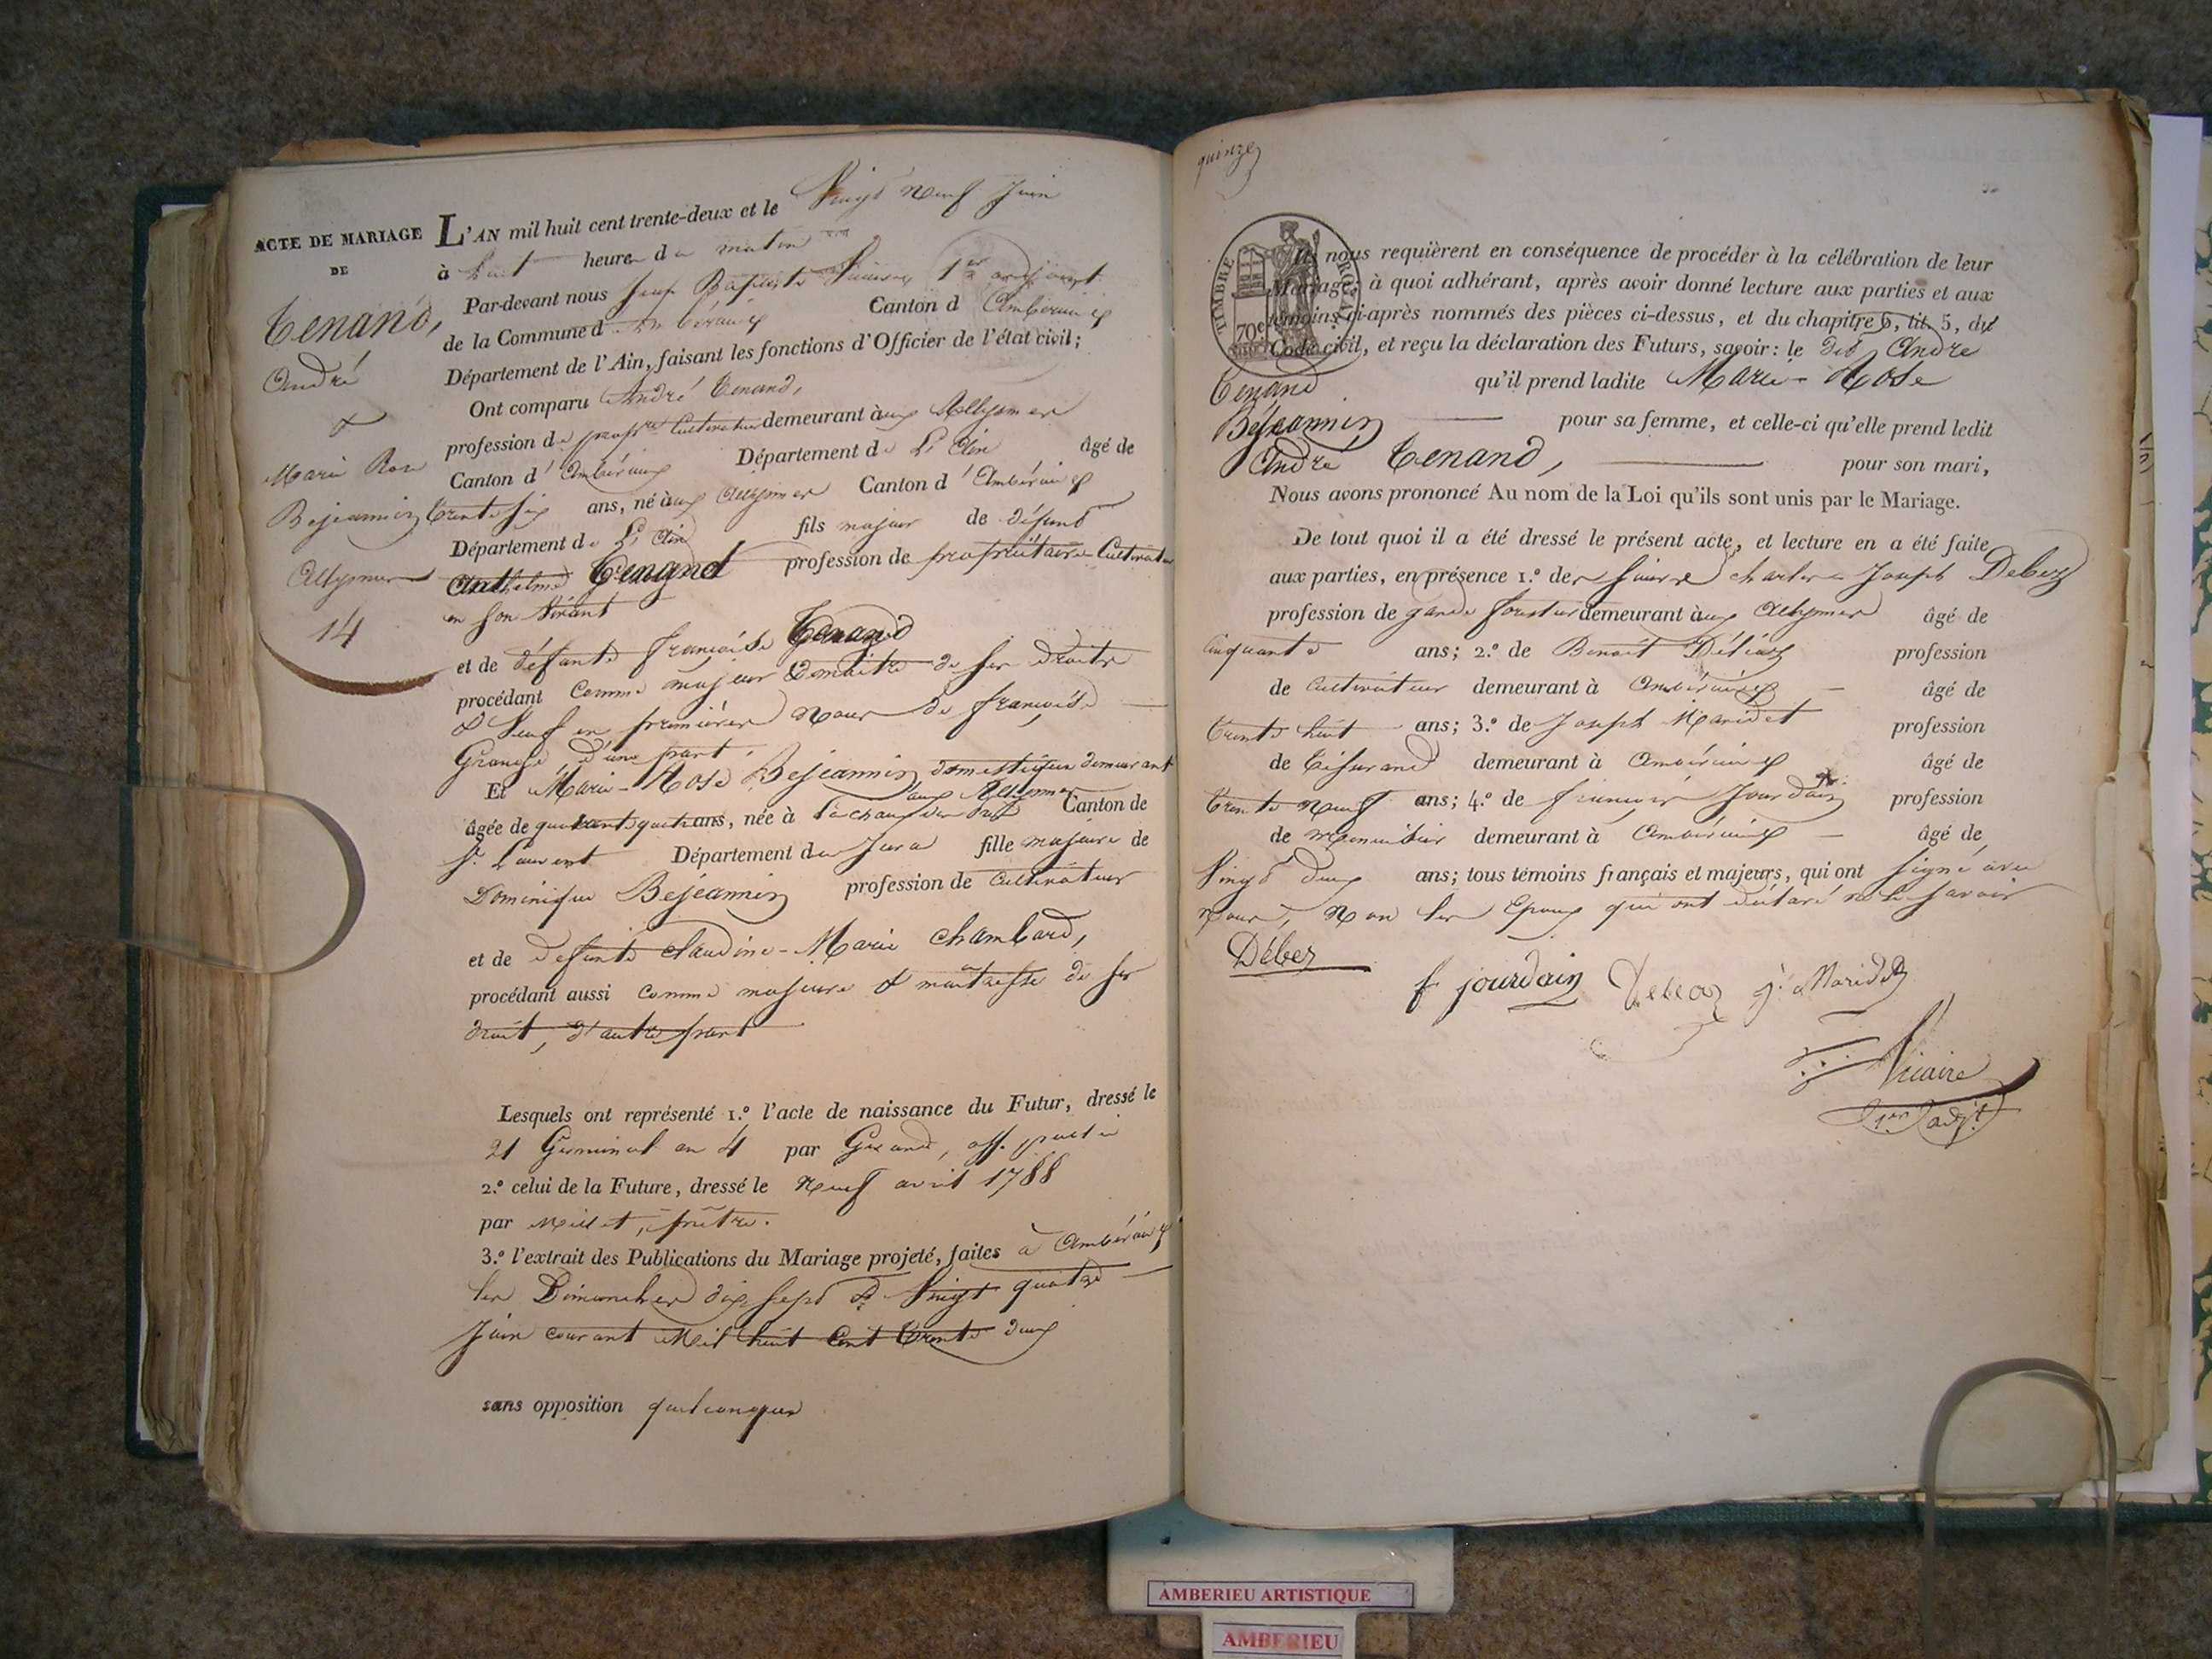 ACTE DE MARIAGE
DE
Tenand,
André
&
Marie Rose
Bejeannin
Allymes
14
L'AN mil huit cent trente-deux et le Vingt neuf Juin
à huit heures du matin
Par-devant nous Jean Baptiste Vicaire 1er adjoint
de la Commune d'Ambérieux Canton d'Ambérieux
Département de l'Ain, faisant les fonctions d'Officier de l'état civil;
Ont comparu André Tenand,
profession de propre Cultivateur demeurant aux Allymes
Canton d'Ambérieux Département de L'Ain âgé de
trente six ans, né aux Allymes Canton d'Ambérieux
Département de L'Ain fils majeur de défunt
Anthelme Tenand profession de propriétaire Cultivateur
en son vivant
et de défunte françoise Tenand
procédant comme majeur & maitre de ses droits
& Veuf en premières Noces de françoise
Grange, d'une part.
Et Marie-Rose Bejeannin, domestique demeurant
aux Allymes
âgée de quarante quatre ans, née à la chaux des Prés Canton de
St. Laurent Département du Jura fille majeure de
Dominique Bejeannin profession de Cultivateur
et de defunte Claudine-Marie Chambard,
procédant aussi comme majeure & maitresse de ses
droits, d'autre part
Lesquels ont représenté 1.º l'acte de naissance du Futur, dressé le
21 Germinal an 4 par , off. public
2.º celui de la Future, dressé le Neuf avril 1788
par Millet, prêtre.
3.º l'extrait des Publications du Mariage projeté, faites à Ambérieux
les Dimanches dix sept & Vingt quatre
Juin courant Mil huit Cent trente deux
sans opposition quelconque
quinze
TIMBRE ROYAL
70c
Ils nous requièrent en conséquence de procéder à la célébration de leur
Mariage; à quoi adhérant, après avoir donné lecture aux parties et aux
témoins ci-après nommés des pièces ci-dessus, et du chapitre 6, tit. 5, du
Code civil, et reçu la déclaration des Futurs, savoir: le dit André
Tenand qu'il prend ladite Marie-Rose
Béjeannin pour sa femme, et celle-ci qu'elle prend ledit
André Tenand, pour son mari,
Nous avons prononcé Au nom de la Loi qu'ils sont unis par le Mariage.
De tout quoi il a été dressé le présent acte, et lecture en a été faite
aux parties, en présence 1.º des sieurs Charles-Joseph Debez
profession de garde forestier demeurant aux Allymes âgé de
Cinquante ans; 2.º de Benoit profession
de Cultivateur demeurant à Ambérieux âgé de
trente huit ans; 3.º de Joseph Maridet profession
de tisserand demeurant à Ambérieux âgé de
trente Neuf ans; 4.º de françois Jourdain profession
de Menuisier demeurant à Ambérieux âgé de
Vingt deux ans; tous témoins français et majeurs, qui ont signé avec
Nous, Non les Epoux qui ont déclaré ne le savoir
Débez
f jourdain J. Maridet
Vicaire
1er adjt
AMBERIEU ARTISTIQUE
AMBERIEU